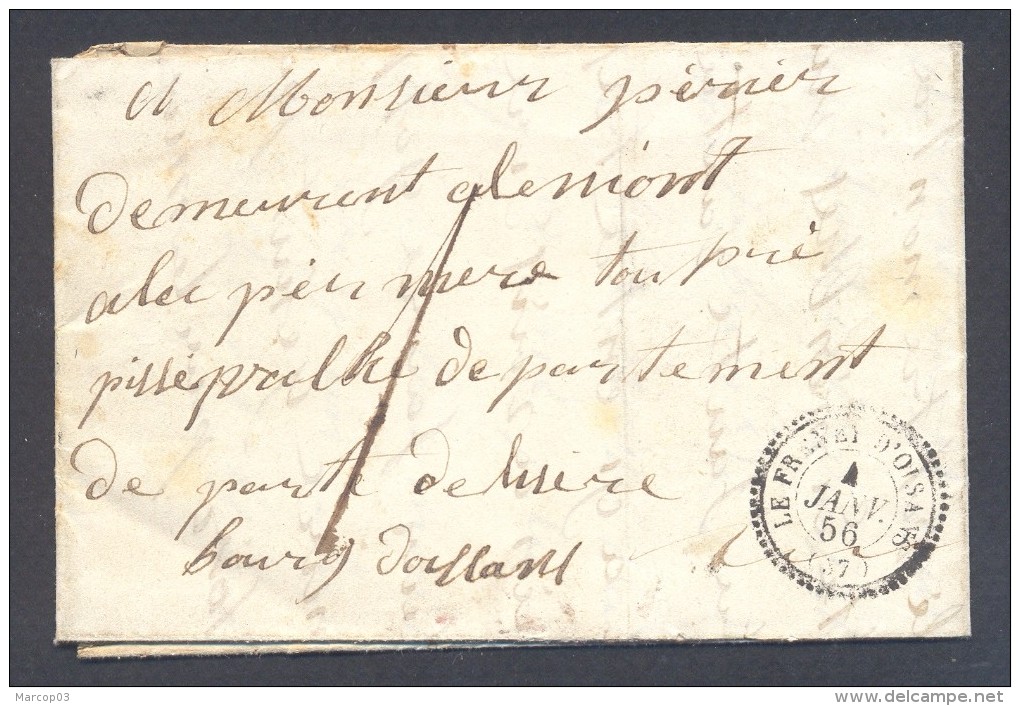 A Monsieur périer
demeurant alemont
alec pér mere tou prié
pissépvalké departement
de parte deluisere
bourg doissans
LE FRENEY D'OISANS
1
JANV.
56
(37)
Marcop03
delcampe.net